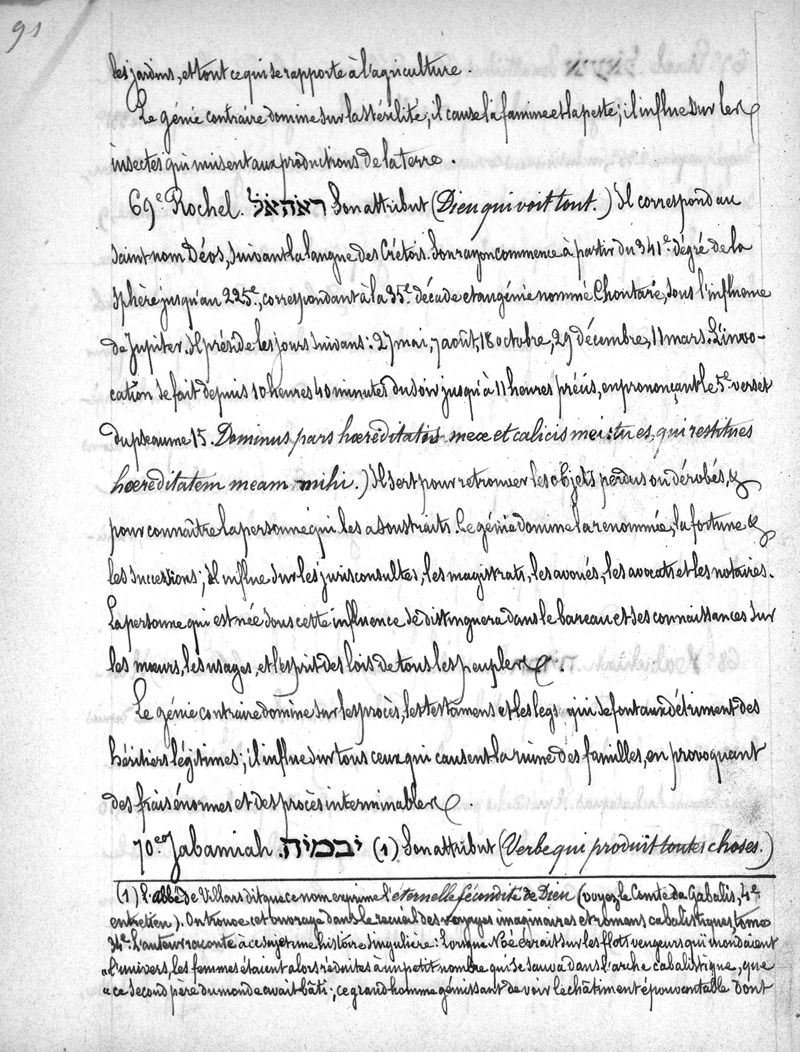 91
les jardins, et tout ce qui se rapporte à l'agriculture.
Le génie contraire domine sur la stérilité, il cause la famine et la peste; il influe sur les
insectes qui nuisent aux productions de la terre.
69e Rochel. ראהאל Son attribut (Dieu qui voit tout.) Il correspond au
Saint nom Déos, suivant la langue des Crétois. Son rayon commence à partir du 341e dégré de la
Sphère jusqu'au 225e, correspondant à la 35e décade et au génie nommé Chontaré, sous l'influence
de Jupiter. Il préside les jours suivans: 27 mai, 7 août, 18 octobre, 29 décembre, 11 mars. L'invo-
cation se fait depuis 10 heures 40 minutes du soir jusqu'à 11 heures précis, en prononçant le 5e verset
du pseaume 15. Dominus pars hœreditatis meæ et calicis mei: tu es, qui restitues
hœreditatem meam mihi.) Il sert pour retrouver les objets perdus ou dérobés, &
pour connaître la personne qui les a soustraits. Ce génie domine la renommée, la fortune &
les successions; il influe sur les jurisconsultes, les magistrats, les avoués, les avocats et les notaires.
La personne qui est née sous cette influence se distinguera dans le bareau et ses connaissances sur
les mœurs, les usages, et l'esprit des lois de tous les peuples.
Le génie contraire domine sur les procès, les testamens et les legs qui se font aux détriment des
héritiers légitimes; il influe sur tous ceux qui causent la ruine des familles, en provoquant
des frais énormes et des procès interminables.
70e Jabamiah. יבמיה (1) Son attribut (Verbe qui produit toutes choses.)
(1) L'abbé de Villars dit que ce nom exprime l'éternelle fécondité de Dieu (voyez le Comte de Gabalis, 4e
entretien). On trouve cet ouvrage dans le recueil des voyages imaginaires et romans cabalistiques, tome
34e. L'auteur raconte à ce sujet une histoire singulière: lorsque Noé errait sur les flots vengeurs qui inondaient
« l'univers, les femmes étaient alors réduites à un petit nombre qui se sauva dans l'arche cabalistique, que
« ce second père du monde avait bâti; ce grand homme gémissant de voir le châtiment épouventable dont